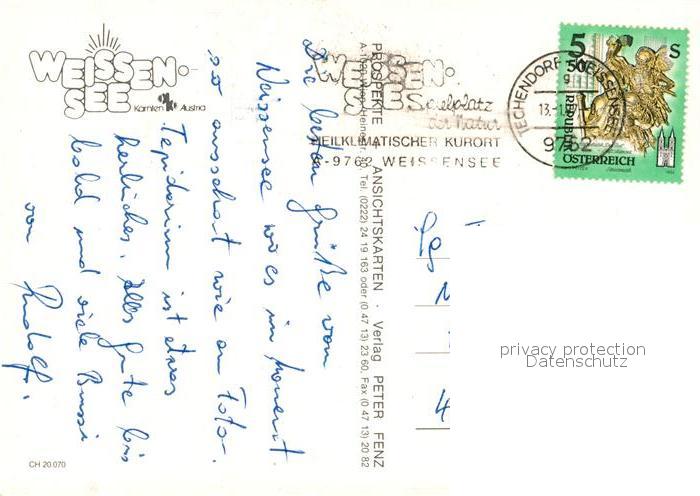 WEISSEN-
SEE
Kärnten Austria
Die besten Grüße vom
Weissensee wo es im Moment
so ausschaut wie am Foto.
Tepidarium ist etwas
herrliches. Alles Gute bis
bald und viele Bussi
von Rudolf.
CH 20.070
PROSPEKTE ANSICHTSKARTEN · Verlag PETER FENZ
Tel. (0222) 24 19 163 oder (0 47 13) 23 60, Fax (0 47 13) 20 82
WEISSEN-
SEE Spielplatz
der Natur
HEILKLIMATISCHER KURORT
A-9762 WEISSENSEE
TECHENDORF WEISSENSEE
13.-1.
9762
5 S
50
g
REPUBLIK
ÖSTERREICH
privacy protection
Datenschutz